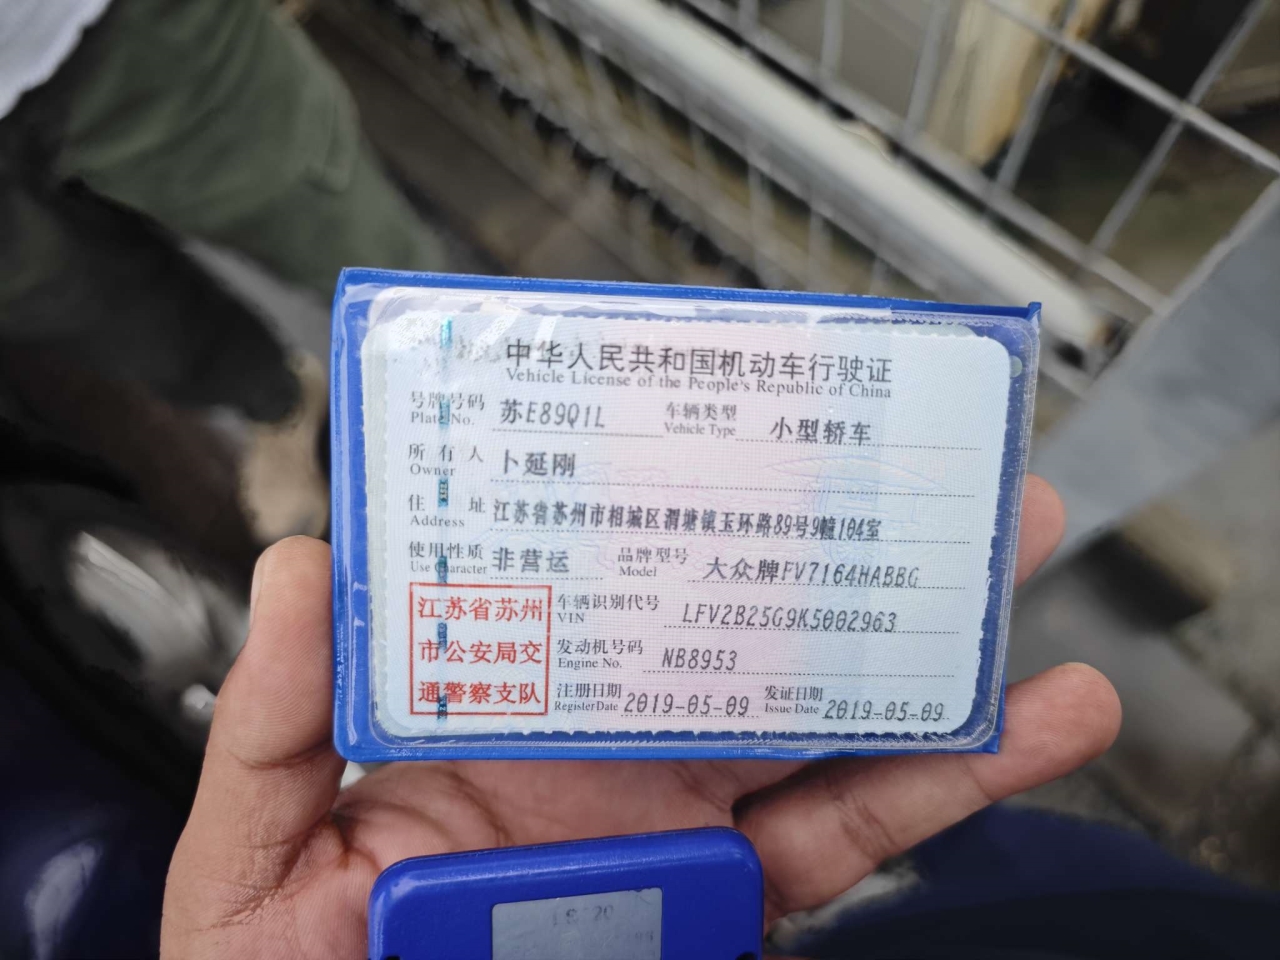 中华人民共和国机动车行驶证
Vehicle License of the People's Republic of China
号牌号码 苏E89Q1L 车辆类型 小型轿车
Plate No. Vehicle Type
所有人 卜延刚
Owner
住址 江苏省苏州市相城区渭塘镇玉环路89号9幢104室
Address
使用性质 非营运 品牌型号 大众牌FV7164HABBG
Use Character Model
江苏省苏州 车辆识别代号 LFV2B25G9K5002963
VIN
市公安局交 发动机号码 NB8953
Engine No.
通警察支队 注册日期 2019-05-09 发证日期 2019-05-09
Register Date Issue Date